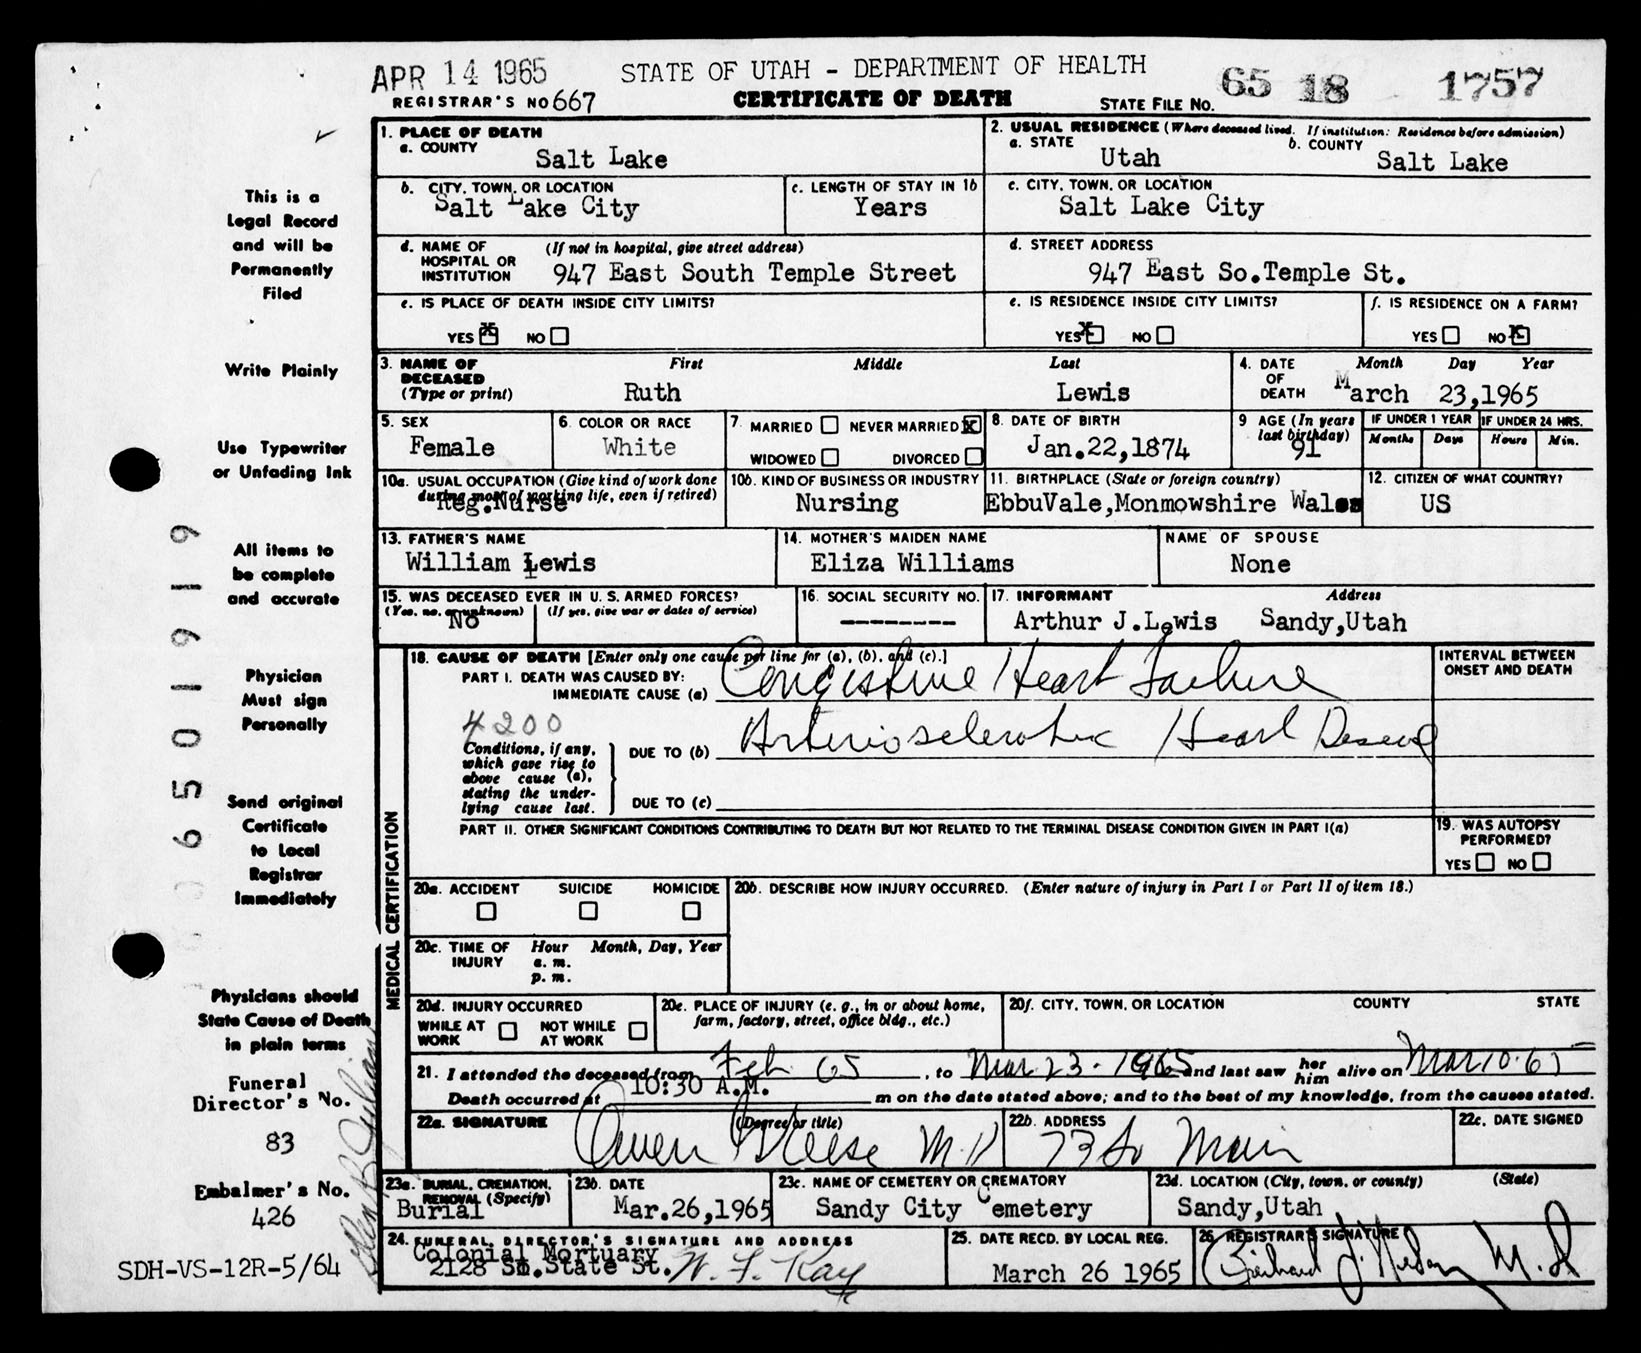 APR 14 1965
STATE OF UTAH - DEPARTMENT OF HEALTH
65 18 1757
REGISTRAR'S NO 667
CERTIFICATE OF DEATH
STATE FILE No.
This is a
Legal Record
and will be
Permanently
Filed
Write Plainly
Use Typewriter
or Unfading Ink
All items to
be complete
and accurate
Physician
Must sign
Personally
Send original
Certificate
to Local
Registrar
Immediately
Physicians should
State Cause of Death
in plain terms
Funeral
Director's No.
83
Embalmer's No.
426
SDH-VS-12R-5/64
1. PLACE OF DEATH
a. COUNTY
Salt Lake
2. USUAL RESIDENCE (Where deceased lived. If institution: Residence before admission)
a. STATE
Utah
b. COUNTY
Salt Lake
b. CITY, TOWN, OR LOCATION
Salt Lake City
c. LENGTH OF STAY IN 1b
Years
c. CITY, TOWN, OR LOCATION
Salt Lake City
d. NAME OF HOSPITAL OR INSTITUTION
(If not in hospital, give street address)
947 East South Temple Street
d. STREET ADDRESS
947 East So.Temple St.
e. IS PLACE OF DEATH INSIDE CITY LIMITS?
YES X NO
e. IS RESIDENCE INSIDE CITY LIMITS?
YES X NO
f. IS RESIDENCE ON A FARM?
YES NO X
3. NAME OF DECEASED (Type or print)
First Middle Last
Ruth Lewis
4. DATE OF DEATH
Month Day Year
March 23,1965
5. SEX
Female
6. COLOR OR RACE
White
7. MARRIED NEVER MARRIED X
WIDOWED DIVORCED
8. DATE OF BIRTH
Jan.22,1874
9 AGE (In years last birthday)
91
IF UNDER 1 YEAR
Months Days
IF UNDER 24 HRS.
Hours Min.
10a. USUAL OCCUPATION (Give kind of work done during most of working life, even if retired)
Reg.Nurse
10b. KIND OF BUSINESS OR INDUSTRY
Nursing
11. BIRTHPLACE (State or foreign country)
EbbuVale,Monmowshire Wales
12. CITIZEN OF WHAT COUNTRY?
US
13. FATHER'S NAME
William Lewis
14. MOTHER'S MAIDEN NAME
Eliza Williams
NAME OF SPOUSE
None
15. WAS DECEASED EVER IN U. S. ARMED FORCES?
(Yes, no, or unknown) (If yes, give war or dates of service)
No
16. SOCIAL SECURITY NO.
--------
17. INFORMANT Address
Arthur J.Lewis Sandy,Utah
MEDICAL CERTIFICATION
18. CAUSE OF DEATH [Enter only one cause per line for (a), (b), and (c).]
PART I. DEATH WAS CAUSED BY:
IMMEDIATE CAUSE (a)
Congestive Heart Failure
4200
Conditions, if any, which gave rise to above cause (a), stating the underlying cause last.
DUE TO (b)
Arteriosclerotic Heart Disease
DUE TO (c)
INTERVAL BETWEEN
ONSET AND DEATH
PART II. OTHER SIGNIFICANT CONDITIONS CONTRIBUTING TO DEATH BUT NOT RELATED TO THE TERMINAL DISEASE CONDITION GIVEN IN PART I(a)
19. WAS AUTOPSY PERFORMED?
YES NO
20a. ACCIDENT SUICIDE HOMICIDE
20b. DESCRIBE HOW INJURY OCCURRED. (Enter nature of injury in Part I or Part II of item 18.)
20c. TIME OF INJURY
Hour Month, Day, Year
a. m.
p. m.
20d. INJURY OCCURRED
WHILE AT WORK NOT WHILE AT WORK
20e. PLACE OF INJURY (e. g., in or about home, farm, factory, street, office bldg., etc.)
20f. CITY, TOWN, OR LOCATION COUNTY STATE
21. I attended the deceased from Feb 65, to Mar 23 - 1965 and last saw her him alive on Mar 10-65
Death occurred at 10:30 A.M. m on the date stated above; and to the best of my knowledge, from the causes stated.
22a. SIGNATURE (Degree or title)
Owen Reese M.D
22b. ADDRESS
73 So Main
22c. DATE SIGNED
23a. BURIAL, CREMATION, REMOVAL (Specify)
Burial
23b. DATE
Mar.26,1965
23c. NAME OF CEMETERY OR CREMATORY
Sandy City Cemetery
23d. LOCATION (City, town, or county) (State)
Sandy,Utah
24. FUNERAL DIRECTOR'S SIGNATURE AND ADDRESS
Colonial Mortuary
2128 So.State St. W. F. Kay
25. DATE RECD. BY LOCAL REG.
March 26 1965
26. REGISTRAR'S SIGNATURE
M.D